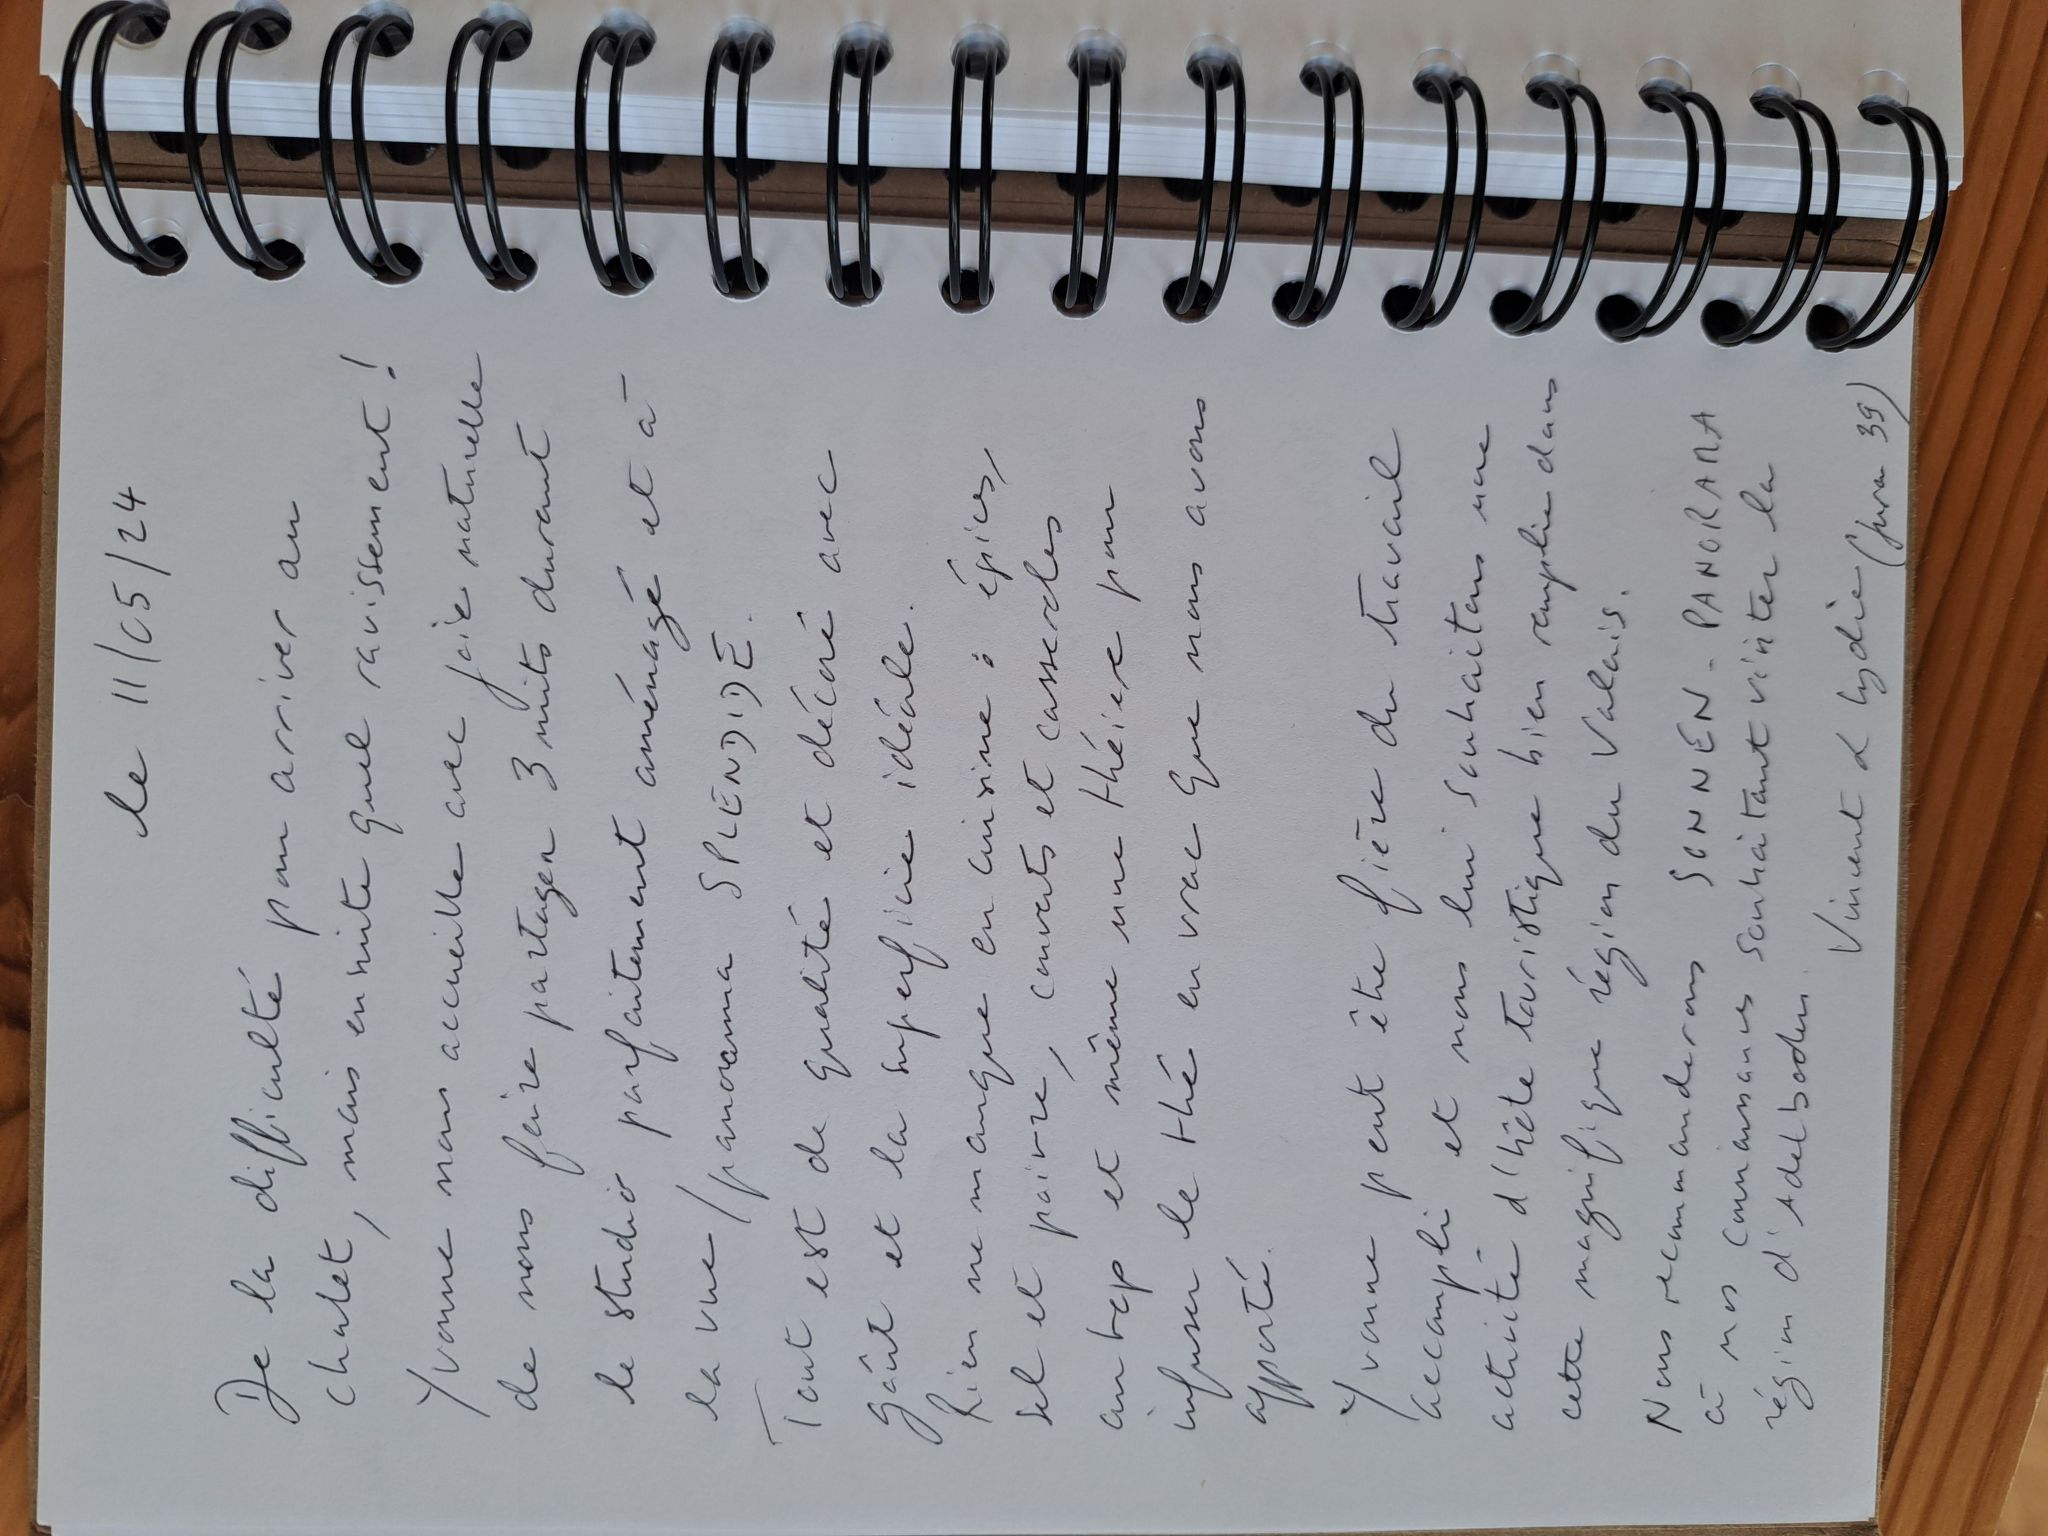 le 11/05/24
De la difficulté pour arriver au
chalet, mais ensuite quel ravissement!
Yvonne nous accueille avec joie naturelle
de nous faire partager 3 nuits durant
le studio parfaitement aménagé et à
la vue / panorama SPLENDIDE.
Tout est de qualité et décoré avec
goût et la superficie idéale.
Rien ne manque en cuisine : épices,
sel et poivre, couverts et casseroles
au top et même une théière pour
infuser le thé en vrac que nous avons
apporté.
Yvonne peut être fière du travail
accompli et nous lui souhaitons une
activité d'hôte touristique bien remplie dans
cette magnifique région du Valais.
Nous recommanderons SONNEN-PANORAMA
à nos connaissances souhaitant visiter la
région d'Adelboden.
Vincent & Lydie (Jura 39)